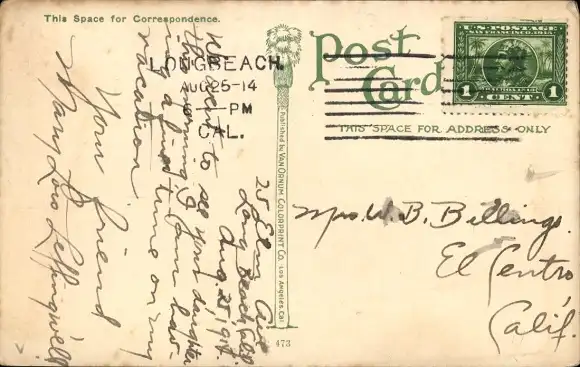 This Space for Correspondence.
Post
Card
THIS SPACE FOR ADDRESS ONLY
U.S. POSTAGE
SAN FRANCISCO 1915
1 CENT 1
LONG BEACH,
AUG 25-14
6 - PM
CAL.
Published by VAN ORNUM COLORPRINT CO. LOS ANGELES CAL.
473
25 Elm Ave
Long Beach, Calif.
Aug. 25, 1914.
We went to see your daughter
this morning. I am hav-
ing a fine time on my
vacation.
Your friend
Mary Lois Leffingwell
Mrs. W. B. Billings.
El Centro
Calif.